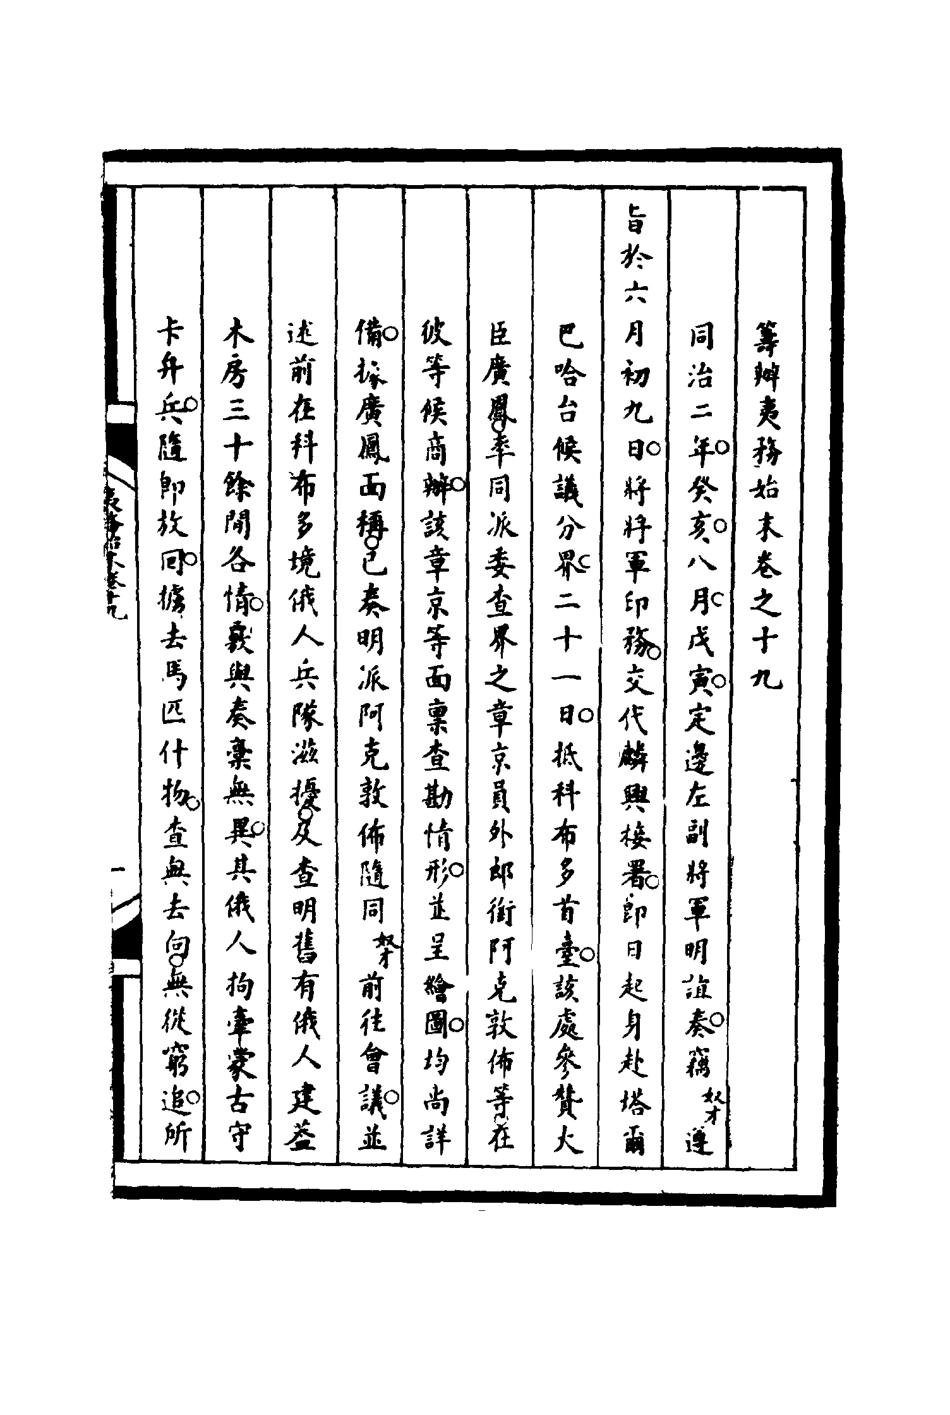 籌辦夷務始末卷之十九
同治二年。癸亥。八月。戊寅。定邊左副將軍明誼奏。竊奴才遵
旨於六月初九日。將將軍印務。交代麟興接署。即日起身赴塔爾
巴哈台候議分界。二十一日。抵科布多首臺。該處參贊大
臣廣鳳。率同派委查界之章京員外郎銜阿克敦佈等。在
彼等候商辦。該章京等面稟查勘情形。並呈繪圖。均尚詳
備。據廣鳳面稱。已奏明派阿克敦佈隨同奴才前往會議。並
述前在科布多境俄人兵隊滋擾。及查明舊有俄人建蓋
木房三十餘間各情。覈與奏稾無異。其俄人拘牽蒙古守
卡弁兵。隨即放回。擄去馬匹什物。查無去向。無從窮追。所
夷務始末卷十九
一